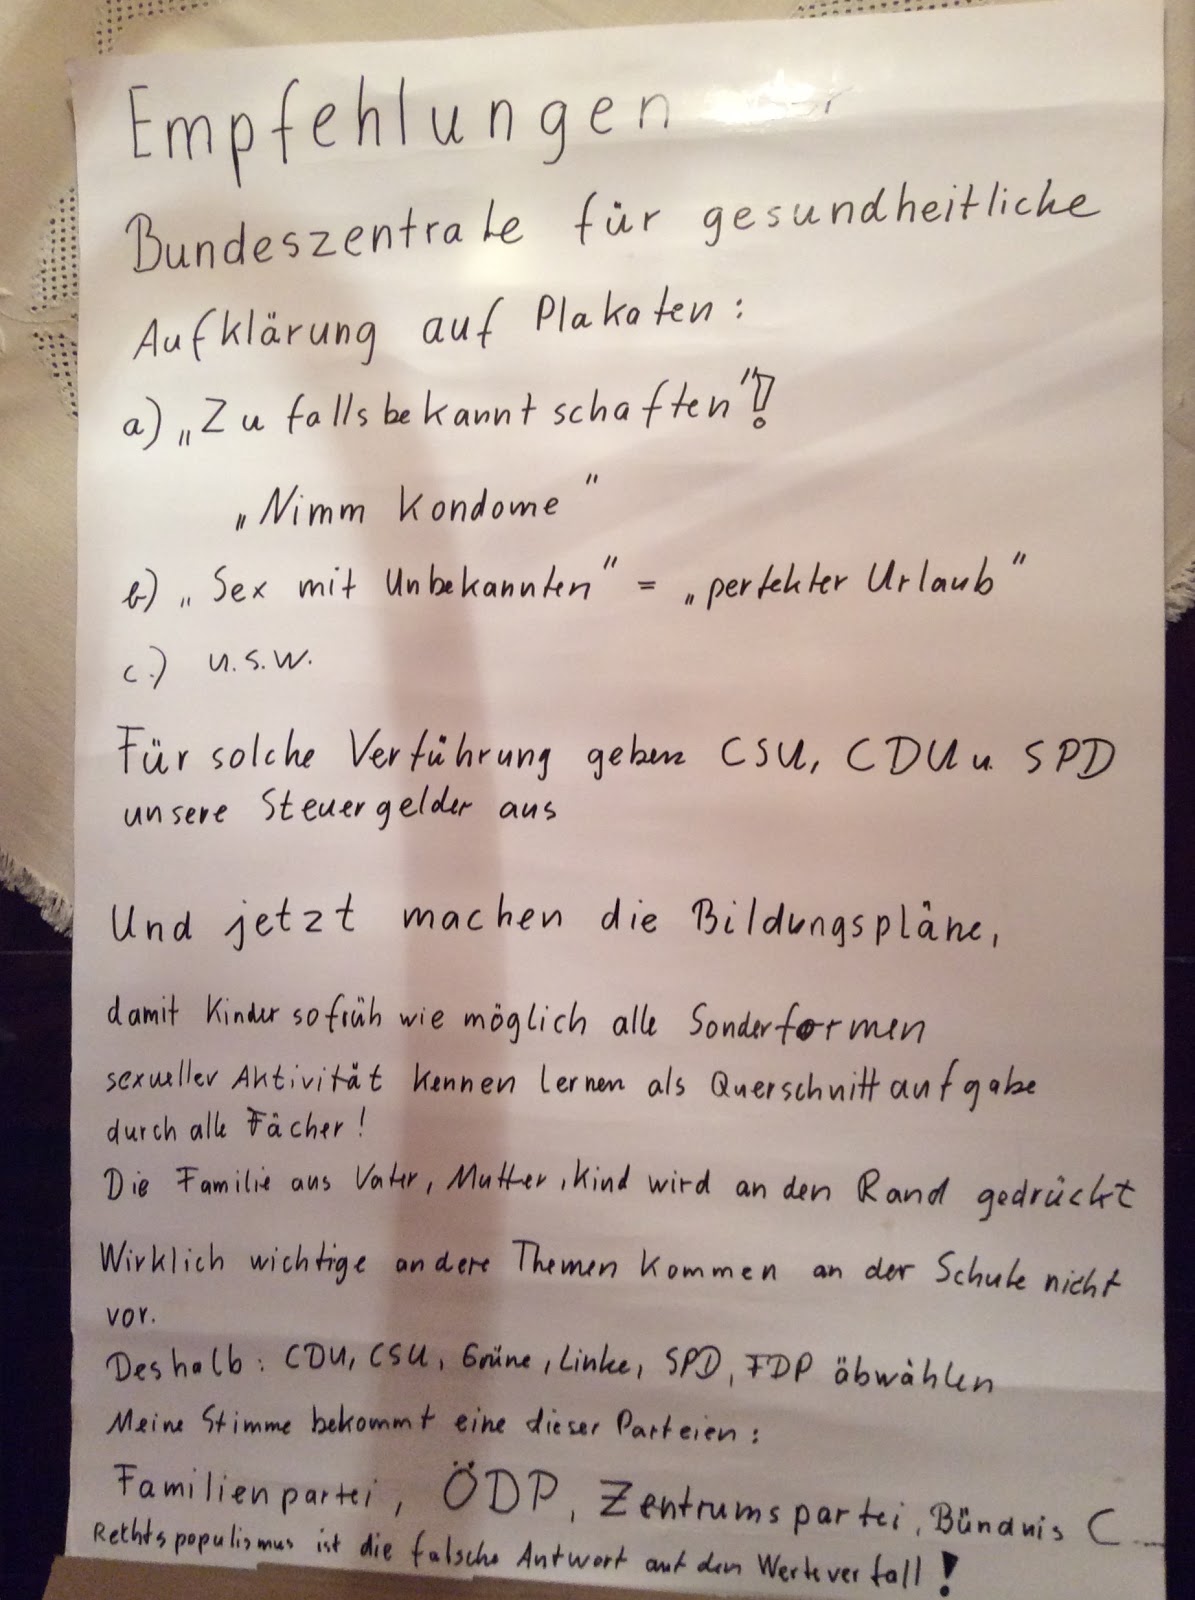 Empfehlungen
Bundeszentrale für gesundheitliche
Aufklärung auf Plakaten:
a) „Zufallsbekanntschaften"!
„Nimm Kondome"
b) „Sex mit Unbekannten" = „perfekter Urlaub"
c.) u.s.w.
Für solche Verführung geben CSU, CDU u. SPD
unsere Steuergelder aus
Und jetzt machen die Bildungspläne,
damit Kinder so früh wie möglich alle Sonderformen
sexueller Aktivität kennen lernen als Querschnittaufgabe
durch alle Fächer!
Die Familie aus Vater, Mutter, Kind wird an den Rand gedrückt
Wirklich wichtige andere Themen kommen an der Schule nicht
vor.
Deshalb: CDU, CSU, Grüne, Linke, SPD, FDP abwählen
Meine Stimme bekommt eine dieser Parteien:
Familienpartei, ÖDP, Zentrumspartei, Bündnis C
Rechtspopulismus ist die falsche Antwort auf den Werteverfall!